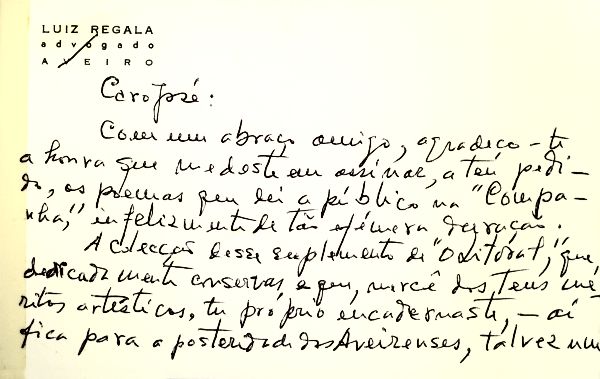 LUIZ REGALA
advogado
AVEIRO
Caro José:
Com um abraço amigo, agradeço-te
a honra que me deste em assinar, a teu pedi-
do, os poemas que dei a público na "Compa-
nha," infelizmente de tão efémera duração.
A colecção desse suplemento de "O Litoral", que
dedicadamente conservas e que, mercê dos teus mé-
ritos artísticos, tu próprio encadernaste, — aí
fica para a posteridade dos Aveirenses, talvez num